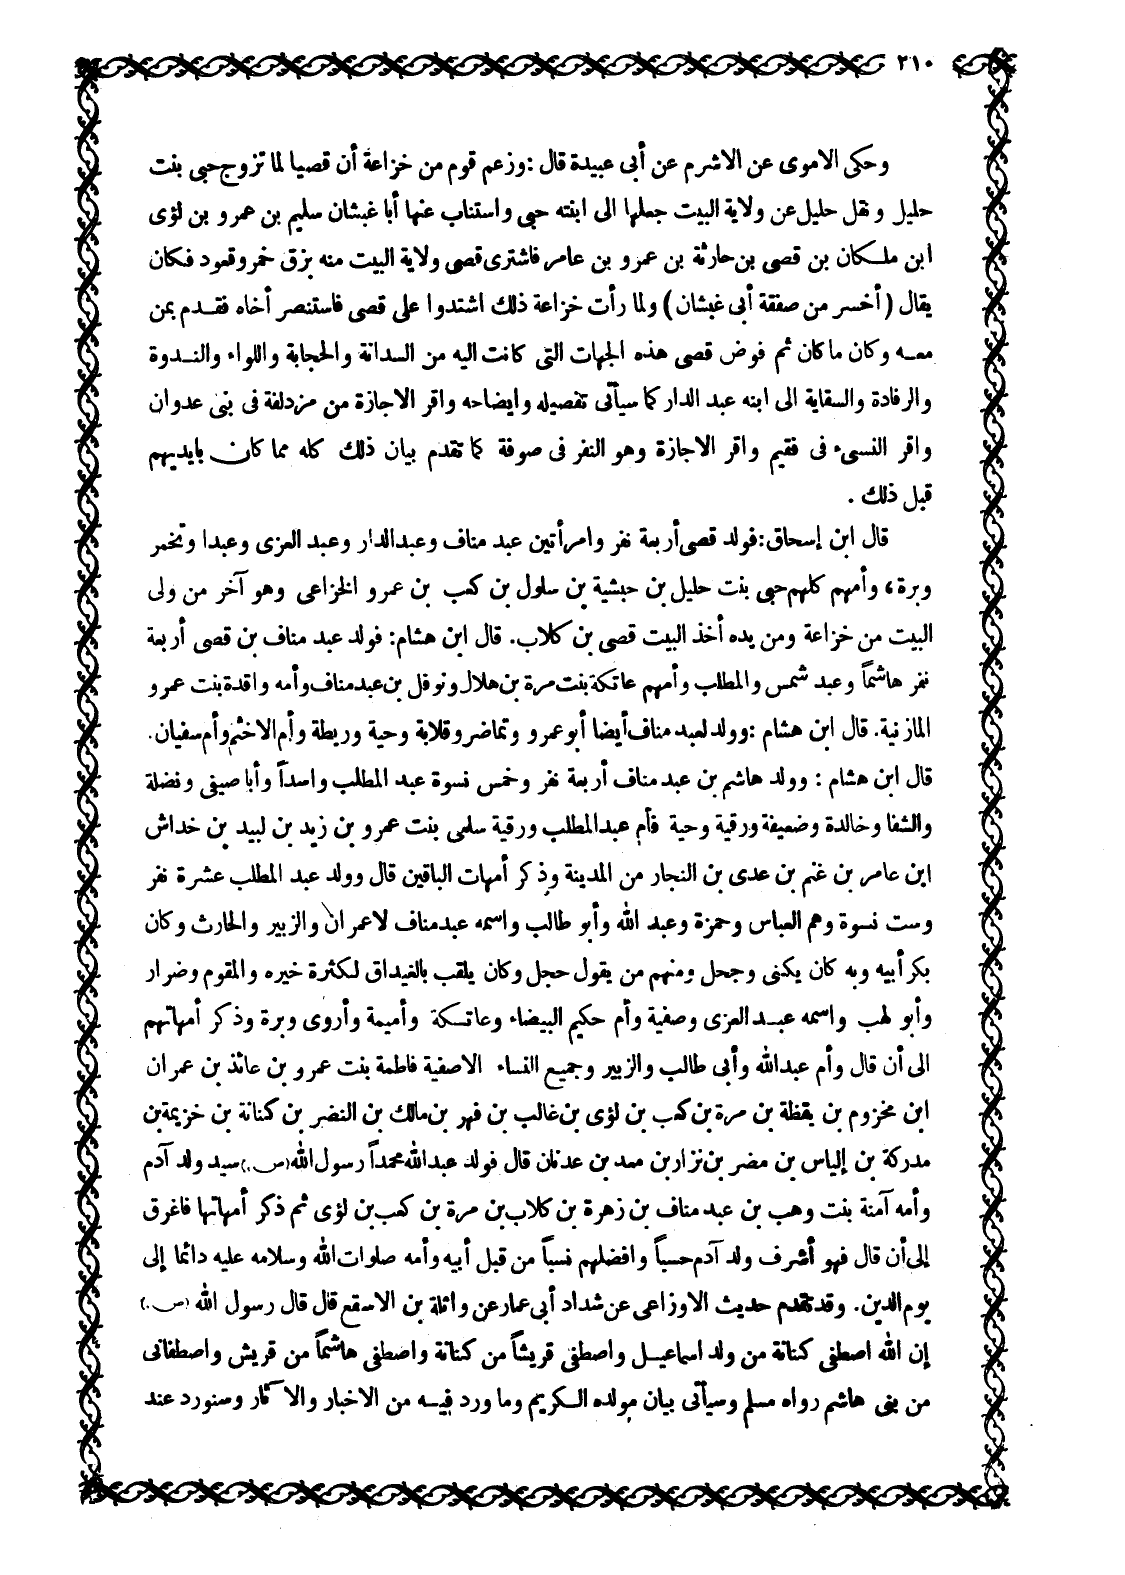 ٢١٠
وحكى الاموى عن الاشرم عن أبى عبيدة قال :وزعم قوم من خزاعة أن قصيا لما تزوج حبى بنت
حليل ونقل حليل عن ولاية البيت جعلها الى ابنته حبى واستناب عنها أبا غبشان سليم بن عمرو بن لؤى
ابن ملكان بن قصى بن حارثة بن عمرو بن عامر فاشترى قصى ولاية البيت منه بزق خمر وقعود فكان
يقال ( أخسر من صفقة أبى غبشان ) ولما رأت خزاعة ذلك اشتدوا على قصى فاستنصر أخاه فقدم بمن
معه وكان ما كان ثم فوض قصى هذه الجهات التى كانت اليه من السدانة والحجابة واللواء والندوة
والرفادة والسقاية الى ابنه عبد الدار كما سيأتى تفصيله وايضاحه واقر الاجازة من مزدلفة فى بنى عدوان
واقر النسىء فى فقيم واقر الاجازة وهو النفر فى صوفة كما تقدم بيان ذلك كله مما كان بايديهم
قبل ذلك .
قال ابن إسحاق:فولد قصى أربعة نفر وامرأتين عبد مناف وعبدالدار وعبد العزى وعبدا وتخمر
وبرة، وأمهم كلهم حبى بنت حليل بن حبشية بن سلول بن كعب بن عمرو الخزاعى وهو آخر من ولى
البيت من خزاعة ومن يده أخذ البيت قصى بن كلاب. قال ابن هشام: فولد عبد مناف بن قصى أربعة
نفر هاشماً وعبد شمس والمطلب وأمهم عاتكة بنت مرة بن هلال ونوفل بن عبد مناف وأمه واقدة بنت عمرو
المازنية. قال ابن هشام :وولد لعبد مناف أيضا أبو عمرو وتماضر وقلابة وحية وريطة وأم الاخثم وأم سفيان.
قال ابن هشام : وولد هاشم بن عبد مناف أربعة نفر وخمس نسوة عبد المطلب واسداً وأبا صيفى ونضلة
والشفا وخالدة وضعيفة ورقية وحية فأم عبدالمطلب ورقية سلمى بنت عمرو بن زيد بن لبيد بن خداش
ابن عامر بن غنم بن عدى بن النجار من المدينة وذكر أمهات الباقين قال وولد عبد المطلب عشرة نفر
وست نسوة وهم العباس وحمزة وعبد الله وأبو طالب واسمه عبد مناف لا عمران والزبير والحارث وكان
بكر أبيه وبه كان يكنى وجحل ومنهم من يقول حجل وكان يلقب بالغيداق لكثرة خيره والمقوم وضرار
وأبو لهب واسمه عبد العزى وصفية وأم حكيم البيضاء وعاتكة وأميمة وأروى وبرة وذكر أمهاتهم
الى أن قال وأم عبدالله وأبى طالب والزبير وجميع النساء الاصفية فاطمة بنت عمرو بن عائذ بن عمران
ابن مخزوم بن يقظة بن مرة بن كعب بن لؤى بن غالب بن فهر بن مالك بن النضر بن كنانة بن خزيمة بن
مدركة بن إلياس بن مضر بن نزار بن معد بن عدنان قال فولد عبدالله محمداً رسول الله (ص.) سيد ولد آدم
وأمه آمنة بنت وهب بن عبد مناف بن زهرة بن كلاب بن مرة بن كعب بن لؤى ثم ذكر أمهاتها فاغرق
إلى أن قال فهو أشرف ولد آدم حسباً وافضلهم نسباً من قبل أبيه وأمه صلوات الله وسلامه عليه دائما إلى
يوم الدين. وقد تقدم حديث الاوزاعى عن شداد أبى عمار عن واثلة بن الاسقع قال قال رسول الله (ص.)
إن الله اصطفى كنانة من ولد اسماعيل واصطفى قريشاً من كنانة واصطفى هاشماً من قريش واصطفانى
من بنى هاشم رواه مسلم وسيأتى بيان مولده الكريم وما ورد فيه من الاخبار والاآثار وسنورد عند